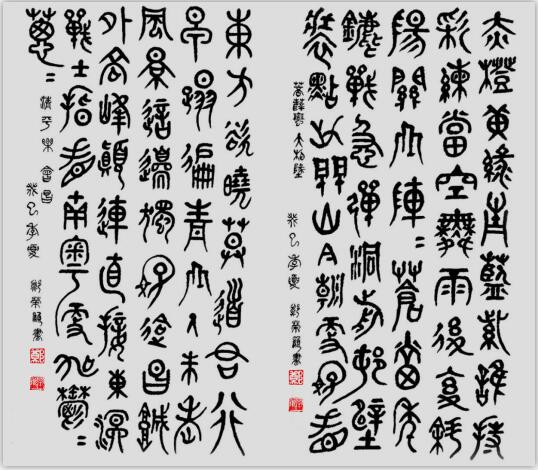 赤橙黃綠青藍紫誰持
彩練當空舞雨後復斜
陽關山陣〻蒼當年
鏖戰急彈洞前村壁
裝點此關山今朝更好看
菩薩蠻 大柏地
東方欲曉莫道君行
早踏遍青山人未老
風景這邊獨好會昌城
外高峰顛連直接東溟
戰士指看南粵更加鬱〻
蔥〻
清平樂 會昌